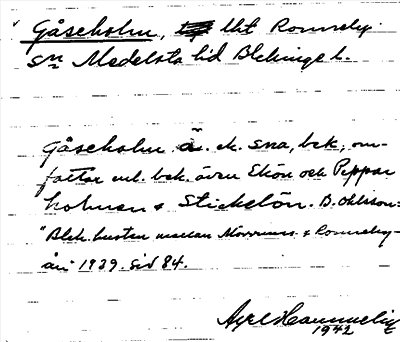 Gåseholm, lht Ronneby
sn Medelsta hd Blekinge l.
Gåseholm ä. ek. sna, bek, om-
fattar enl. bek. även Ekön och Peppar
holmen & Stickelön. B. Ohlsson:
"Blek. kusten mellan Mörrums- & Ronneby-
ån" 1939. Sid 84.
Axel
1942